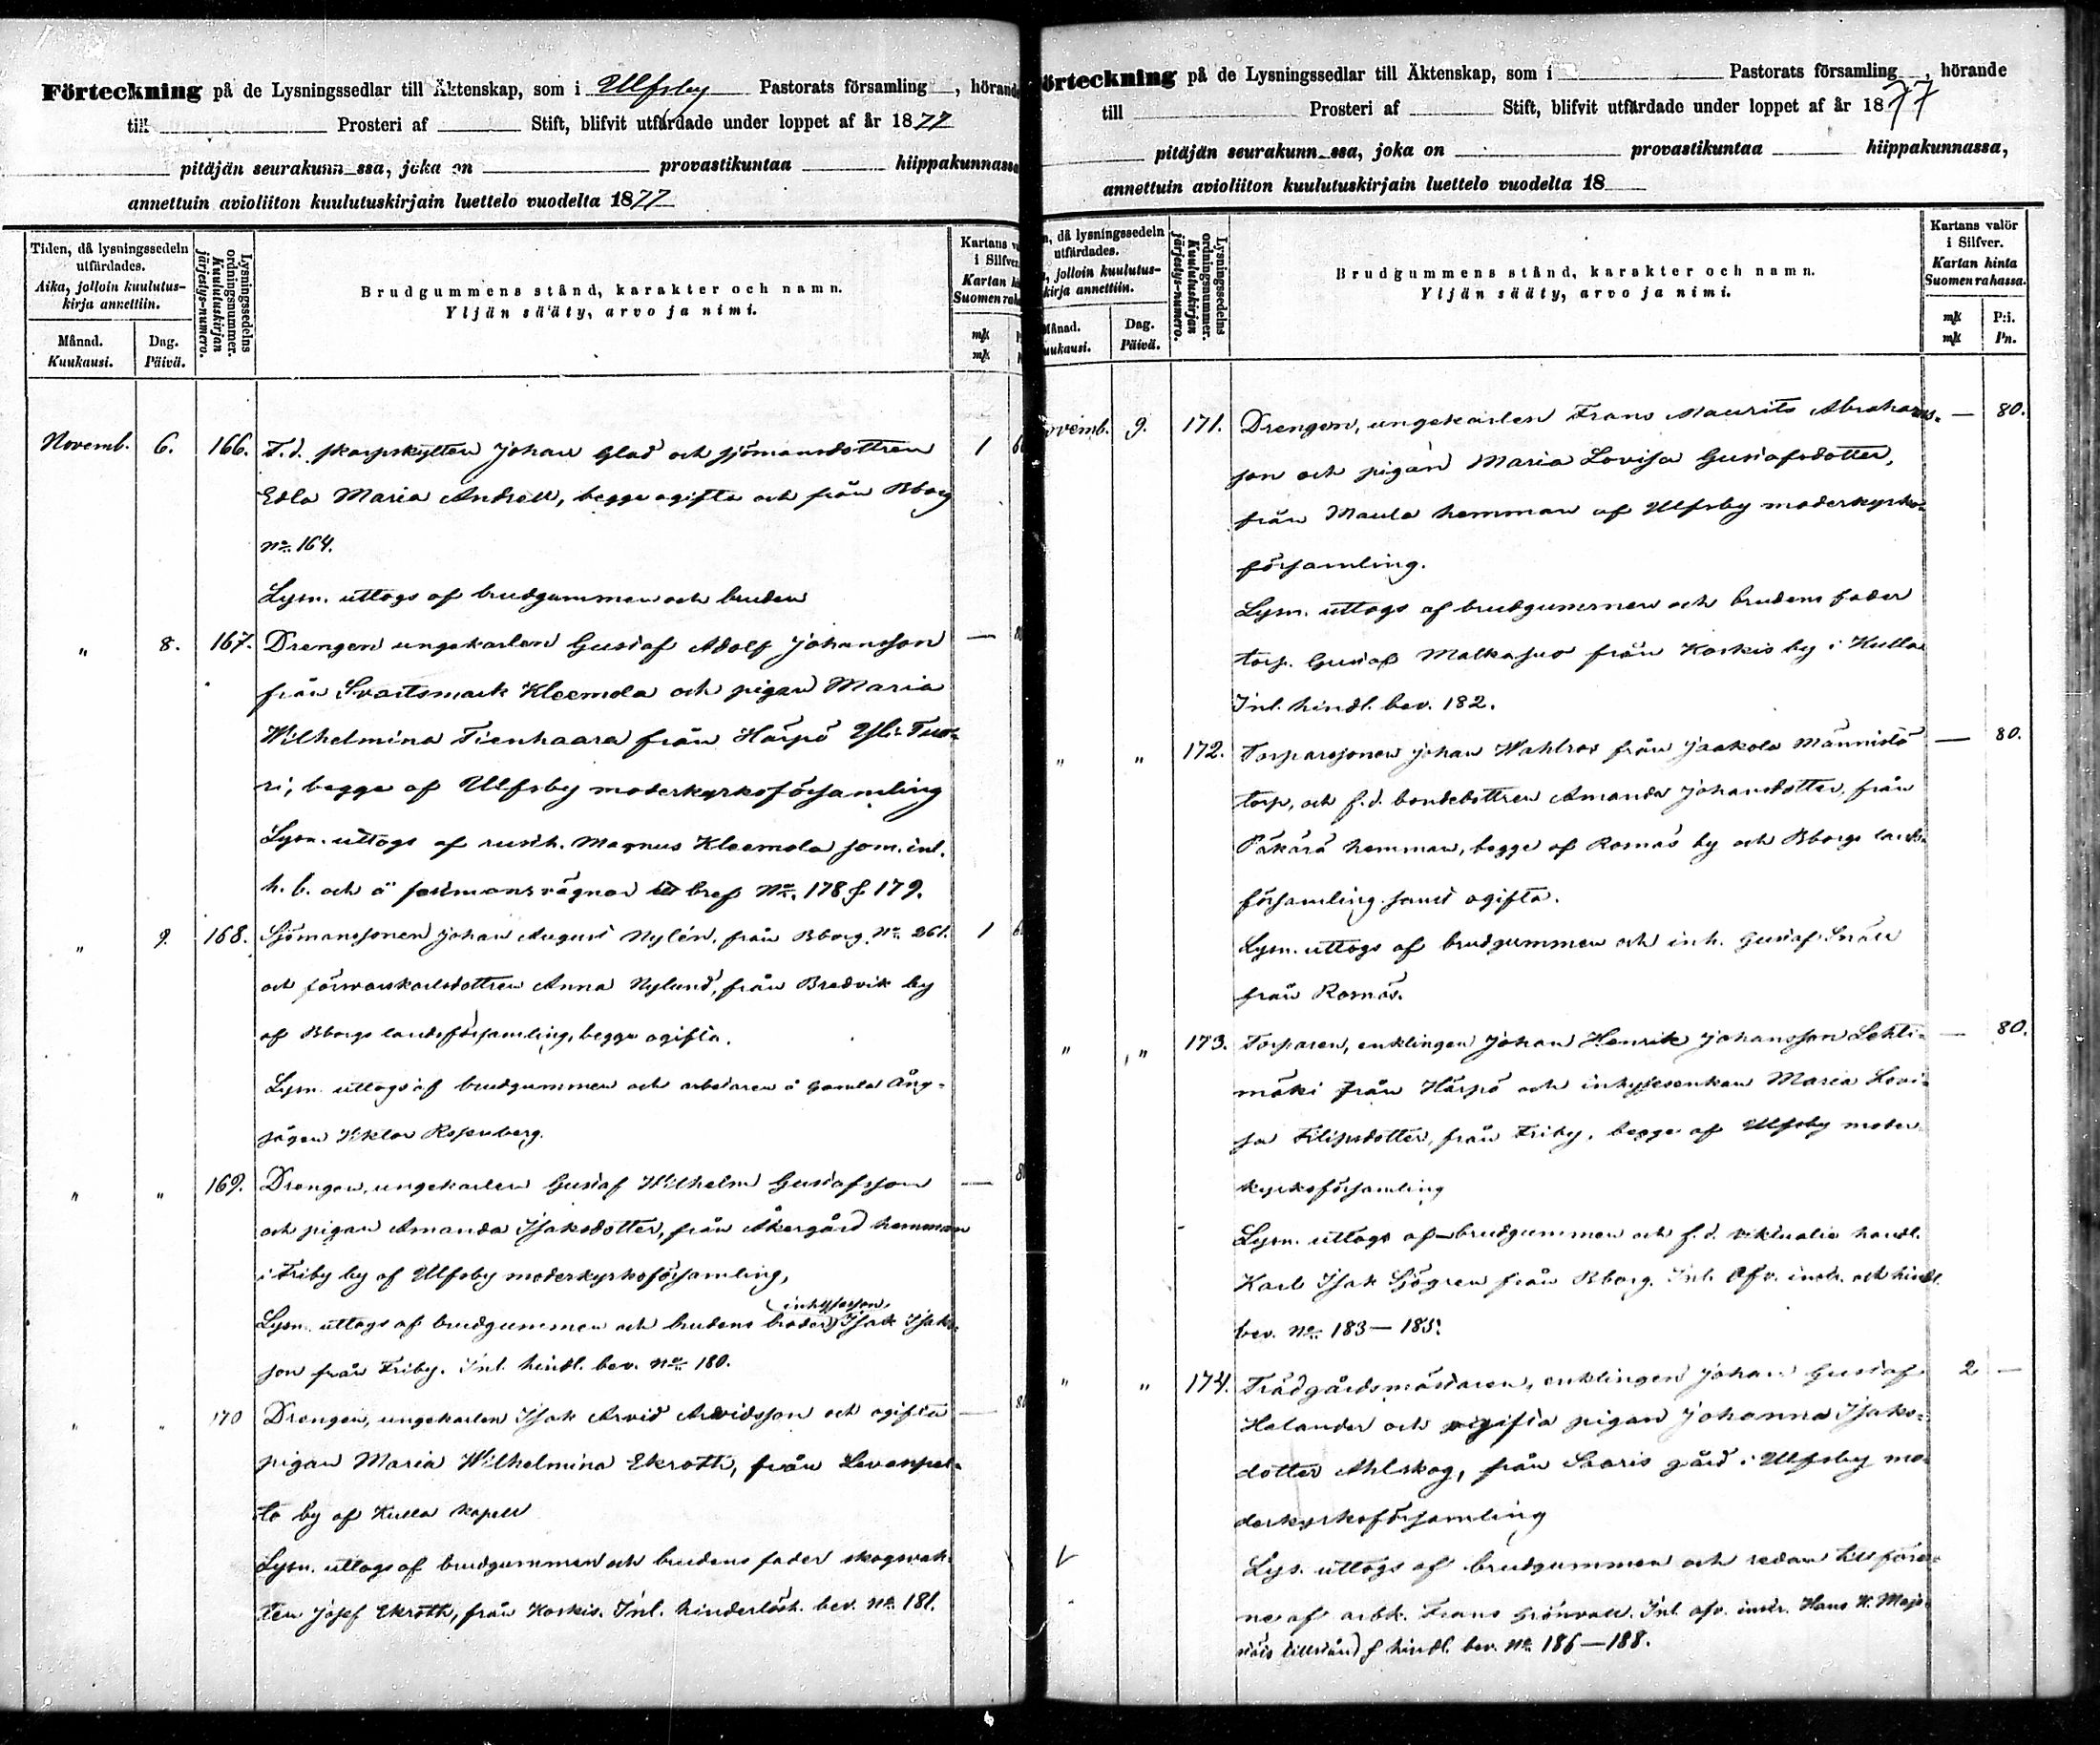 Förteckning på de Lysningssedlar till Äktenskap, som i Ulfsby Pastorats församling , hörande
till Prosteri af Stift, blifvit utfärdade under loppet af år 1877
pitäjän seurakunn ssa, joka on provastikuntaa hiippakunnassa
annettuin avioliiton kuulutuskirjain luettelo vuodelta 1877
Tiden, då lysningssedeln utfärdades.
Aika, jolloin kuulutuskirja annettiin.
Månad. Kuukausi.
Dag. Päivä.
Lysningssedelns ordningsnummer.
Kuulutuskirjan järjestys-numero.
Brudgummens stånd, karakter och namn.
Yljän sääty, arvo ja nimi.
Kartans
i Silfver.
Kartan
Suomen
mk
mk
Novemb. 6. 166. F.d. skarpskytten Johan Glad och sjömansdottren 1
Edla Maria Andsell, begge ogifta och från Bborg
No 164.
Lysn. uttogs af brudgummen och bruden
" 8. 167. Drengen ungekarlen Gustaf Adolf Johansson —
från Svartsmark Kleemola och pigan Maria
Wilhelmina Tienhaara från Härpö Yli-Tuo-
ri, begge af Ulfsby moderkyrkoförsamling
Lysn. uttogs af rusth. Magnus Kleemola som inl.
h. b. och å förmans vägnar bref No. 178 & 179.
" 9. 168. Sjömanssonen Johan August Nylén, från Bborg No 261. 1
och försvarskarlsdottren Anna Nylund, från Bredvik by
af Bborgs landsförsamling, begge ogifta.
Lysn. uttogs af brudgummen och arbetaren å gamla Ång-
sågen Viktor Rosenberg.
" " 169. Drengen, ungekarlen Gustaf Wilhelm Gustafsson —
och pigan Amanda Isaksdotter, från Åkergård hemman
i Friby by af Ulfsby moderkyrkoförsamling,
inhysesson,
Lysn. uttogs af brudgummen och brudens broder, Isak Isaks-
son från Friby. Inl. hindl. bev. No 180.
" " 170 Drengen, ungekarlen Isak Arvid Arvidsson och ogifta —
pigan Maria Wilhelmina Ekroth, från Levanpel-
to by af Kulla kapell
Lysn. uttogs af brudgummen och brudens fader skogvak-
ten Josef Ekroth, från Koskis. Inl. hinderlösh. bev. No 181.
örteckning på de Lysningssedlar till Äktenskap, som i Pastorats församling , hörande
till Prosteri af Stift, blifvit utfärdade under loppet af år 1877
pitäjän seurakunn ssa, joka on provastikuntaa hiippakunnassa,
annettuin avioliiton kuulutuskirjain luettelo vuodelta 18
, då lysningssedeln utfärdades.
, jolloin kuulutuskirja annettiin.
Månad. uukausi.
Dag. Päivä.
Lysningssedelns ordningsnummer.
Kuulutuskirjan järjestys-numero.
Brudgummens stånd, karakter och namn.
Yljän sääty, arvo ja nimi.
Kartans valör
i Silfver.
Kartan hinta
Suomen rahassa.
mk P:i.
mk Pn.
ovemb. 9. 171. Drengen, ungekarlen Frans Maurits Abrahams- — 80.
son och pigan Maria Lovisa Gustafsdotter,
från Maula hemman af Ulfsby moderkyrko-
församling.
Lysn. uttogs af brudgummen och brudens fader
torp. Gustaf Malkasuo från Koskis by i Kulla
Inl. hindl. bev. 182.
" " 172. Torparesonen Johan Wahlros från Jaakola Männistö — 80.
torp, och f.d. bondedottren Amanda Johansdotter, från
Päkärä hemman, begge af Rosnäs by och Bborgs lands-
församling samt ogifta.
Lysn. uttogs af brudgummen och inh. Gustaf Snäll
från Rosnäs.
" " 173. Torparen, enklingen Johan Henrik Johansson Lehti- — 80.
mäki från Härpö och inhysesenkan Maria Lovi-
sa Filipsdotter, från Friby, begge af Ulfsby moder
kyrkoförsamling
Lysn. uttogs af brudgummen och f.d. viktualie handl.
Karl Isak Sjögren från Bborg. Inl. Afv. instr. och hindl.
bev. No 183—185.
" " 174. Trädgårdsmästaren, enklingen Johan Gustaf 2 —
Helander och ogifta pigan Johanna Isaks-
dotter Ahlskog, från Saaris gård i Ulfsby mo-
derkyrkoförsamling
Lys. uttogs af brudgummen och redan till före-
ne af arbk. Frans Grönvall. Inl. afv. instr. Hans K. Maje-
stäts tillstånd & hindl. bev. No 186—188.